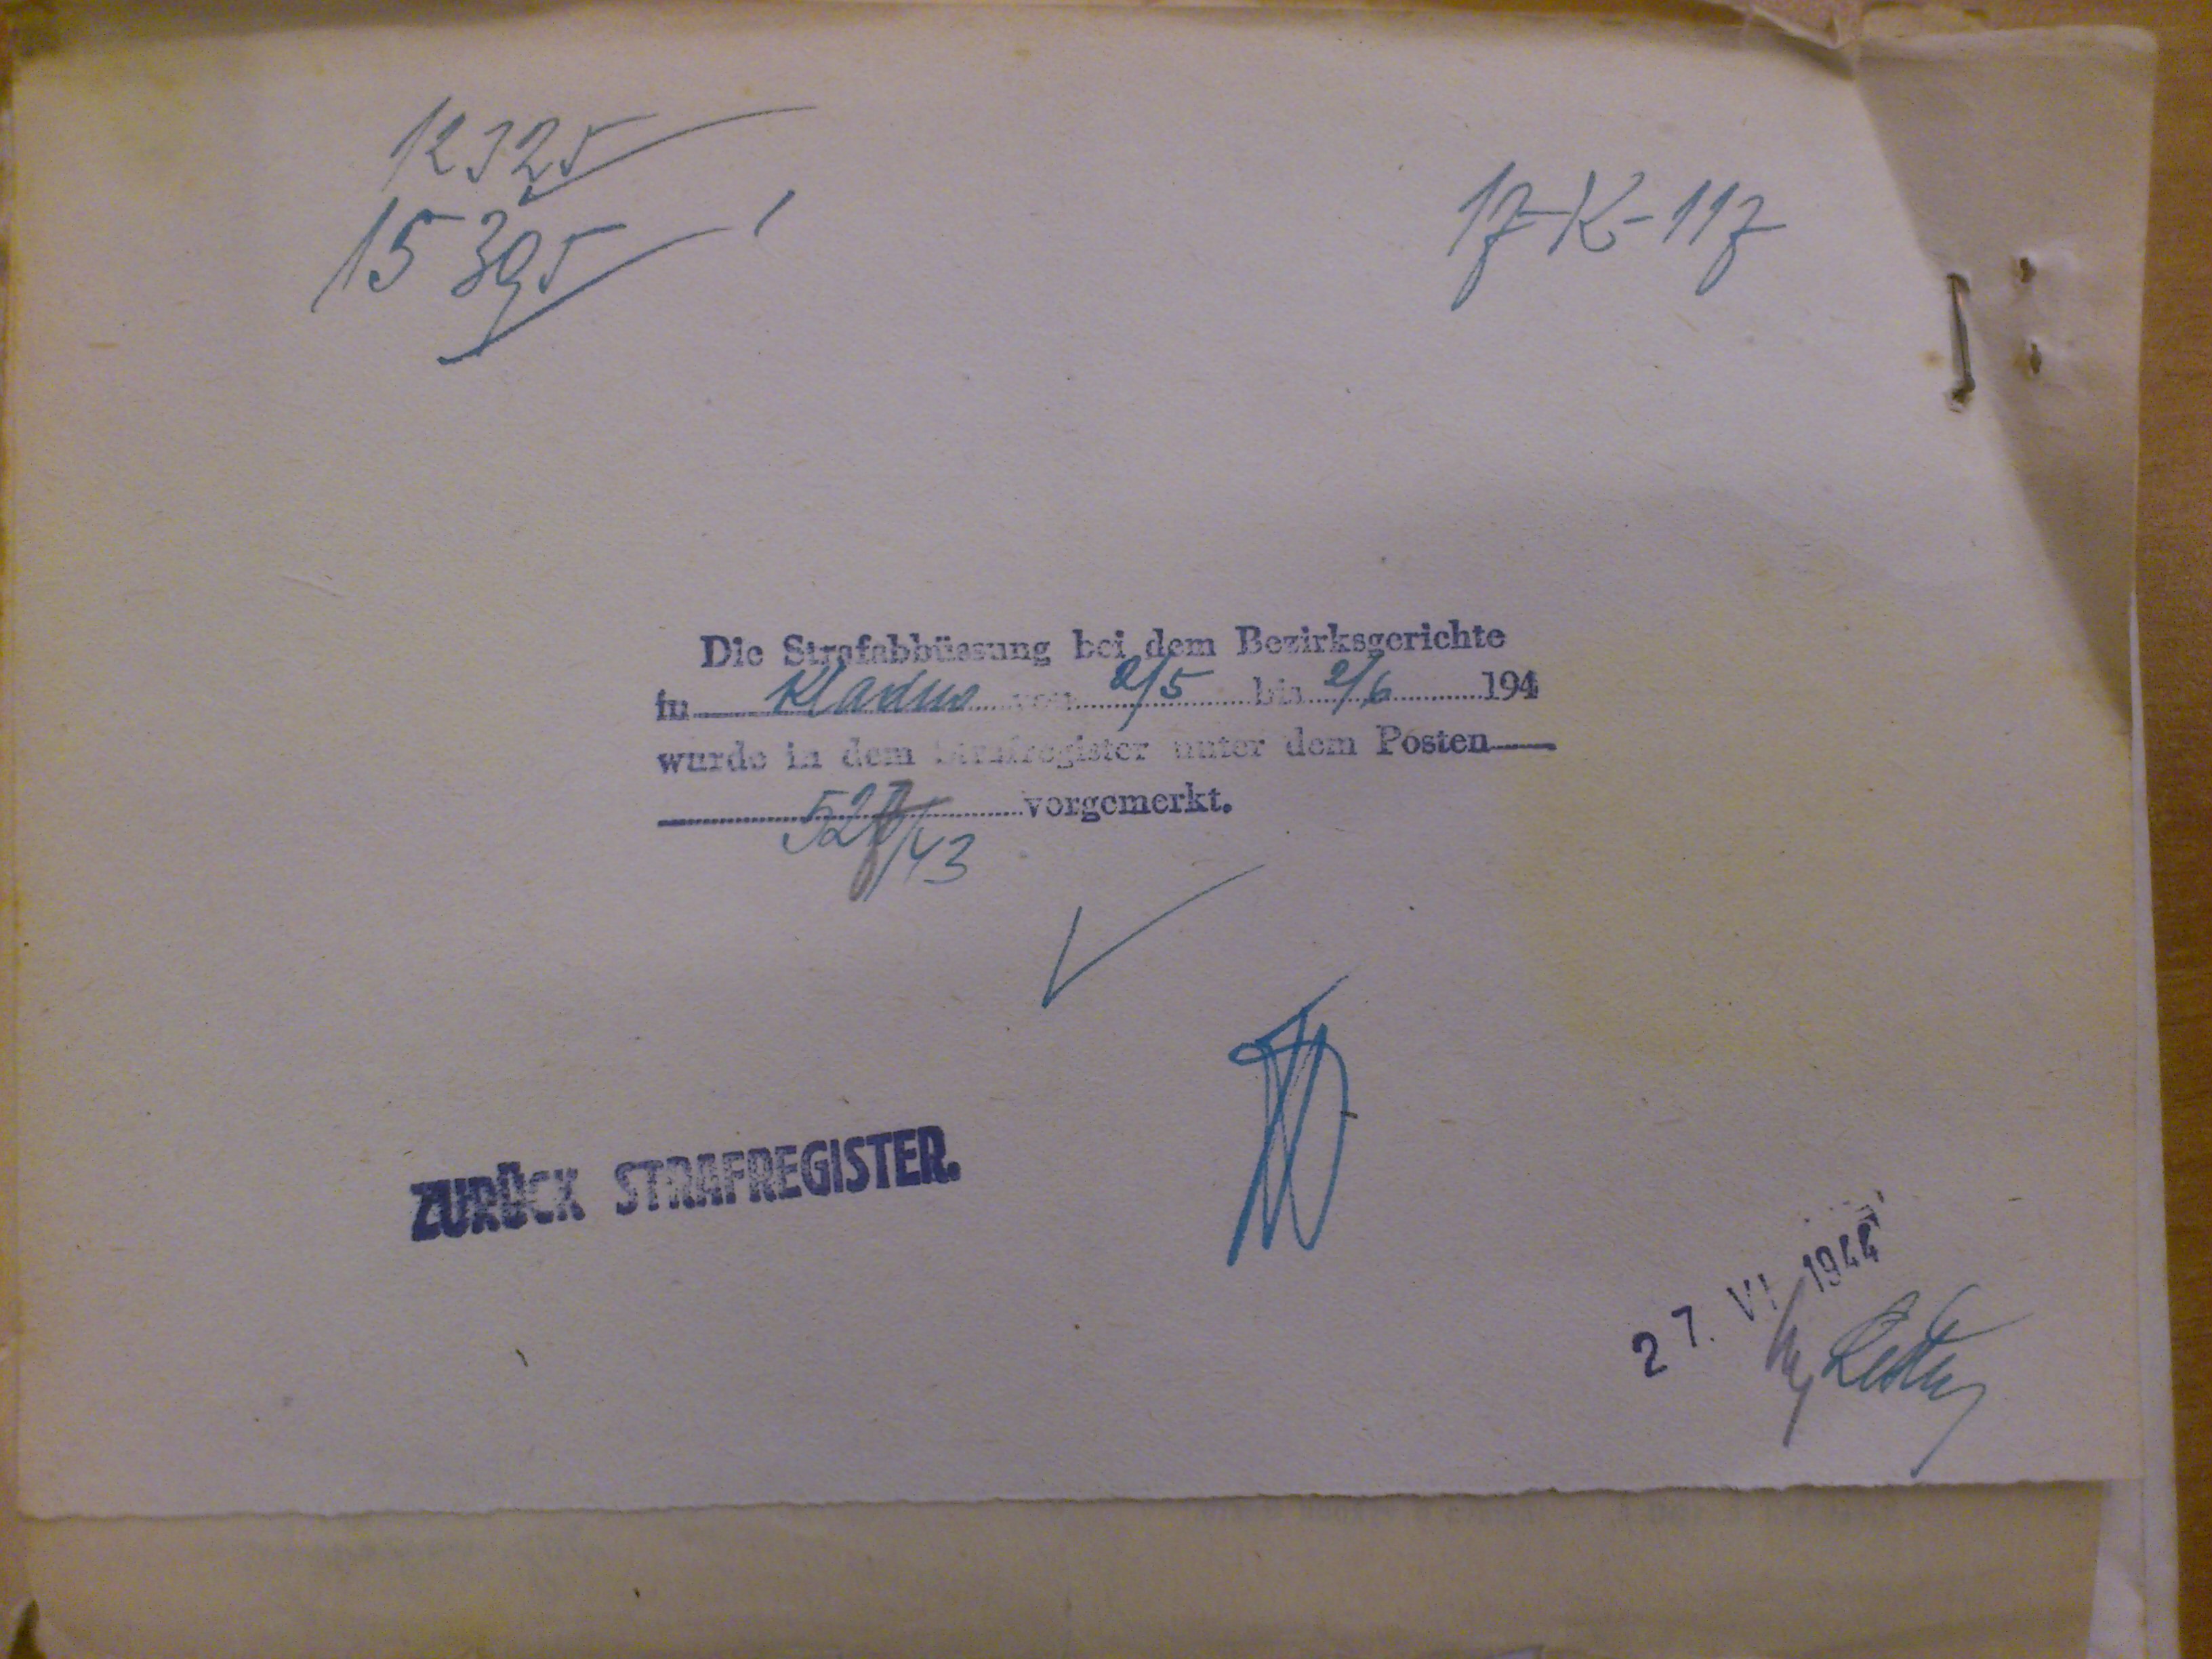 12325
15395
17-K-117
Die Strafabbüssung bei dem Bezirksgerichte
in Kladno von 2/5 bis 2/6 194
wurde in dem Strafregister unter dem Posten
527/43 vorgemerkt.
ZURÜCK STRAFREGISTER.
27. VI. 1944